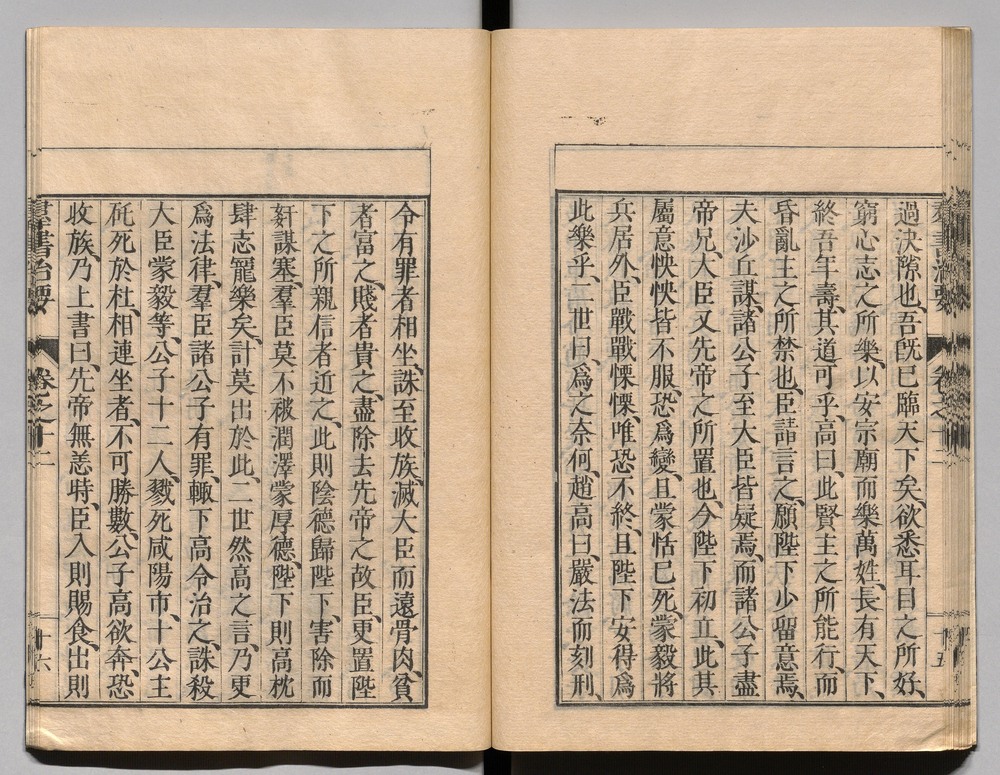 過決隙也、吾旣已臨天下矣、欲悉耳目之所好、
窮心志之所樂、以安宗廟而樂萬姓、長有天下、
終吾年壽、其道可乎、高曰、此賢主之所能行、而
昏亂主之所禁也、臣請言之、願陛下少留意焉、
夫沙丘謀、諸公子至大臣皆疑焉、而諸公子盡
帝兄、大臣又先帝之所置也、今陛下初立、此其
屬意怏怏皆不服、恐爲變、且蒙恬已死、蒙毅將
兵居外、臣戰戰慄慄、唯恐不終、且陛下安得爲
此樂乎、二世曰、爲之奈何、趙高曰、嚴法而刻刑、
令有罪者相坐、誅至收族、滅大臣而遠骨肉、貧
者富之、賤者貴之、盡除去先帝之故臣、更置陛
下之所親信者近之、此則陰德歸陛下、害除而
姧謀塞、羣臣莫不被潤澤蒙厚德、陛下則高枕
肆志寵樂矣、計莫出於此、二世然高之言、乃更
爲法律、羣臣諸公子有罪、輙下高令治之、誅殺
大臣蒙毅等、公子十二人、戮死咸陽市、十公主
矺死於杜、相連坐者、不可勝數、公子高欲奔、恐
收族、乃上書曰、先帝無恙時、臣入則賜食、出則
羣書治要 卷之十二 十六